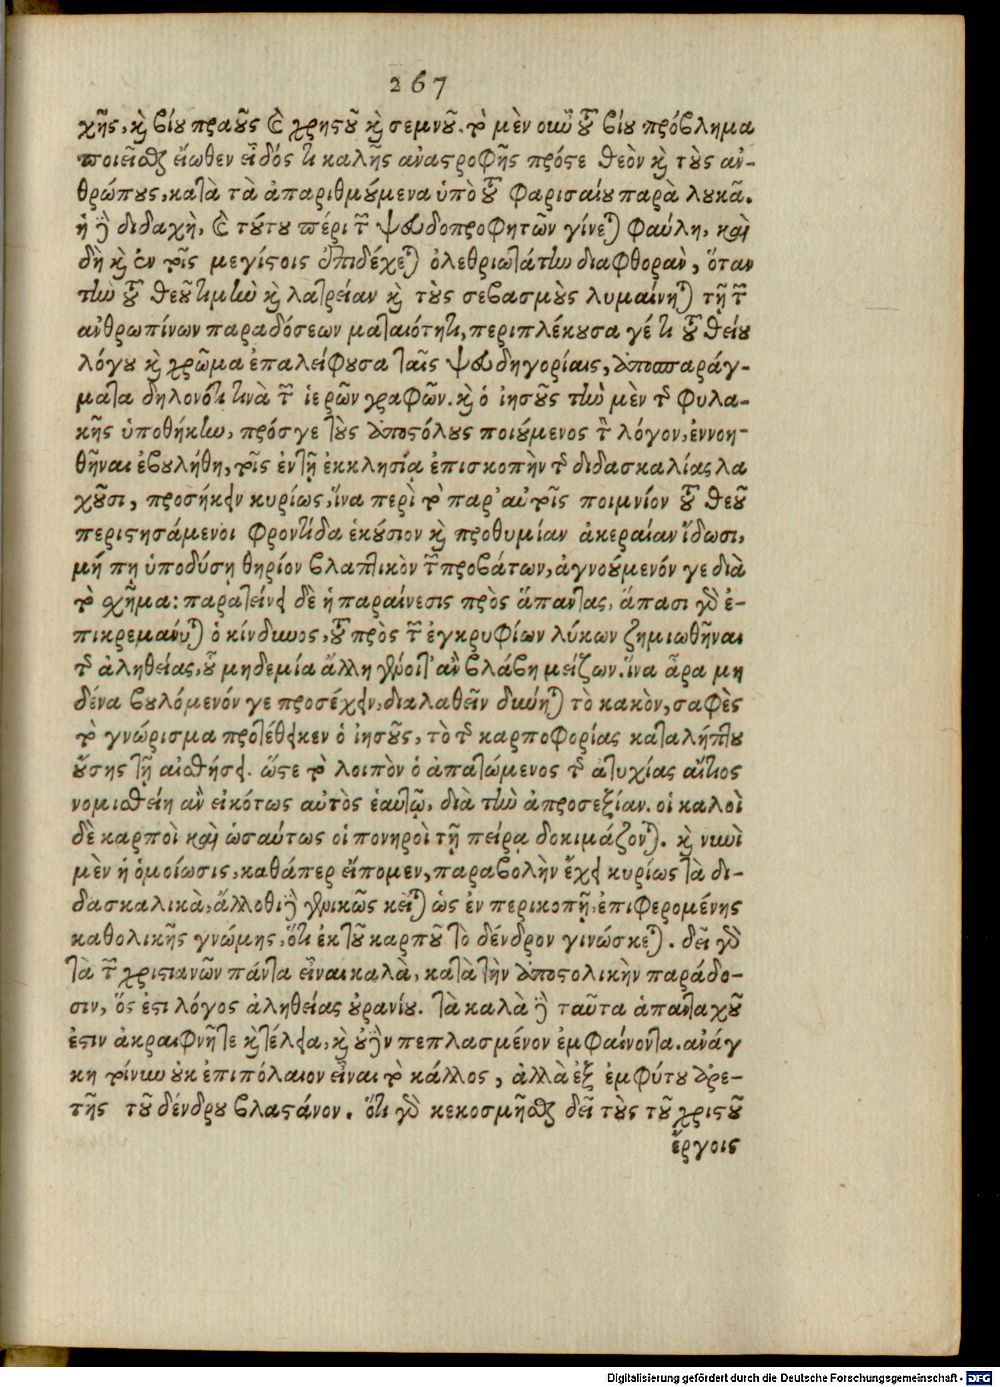 267
χῆς, καὶ βίου πραοῦς καὶ χρηστοῦ καὶ σεμνοῦ. τὸ μὲν οὖν τοῦ βίου πρόβλημα
ποιεῖσθαι εἴωθεν εἶδός τι καλῆς ἀναστροφῆς πρός τε θεὸν καὶ τοὺς ἀν-
θρώπους, κατὰ τὰ ἀπαριθμούμενα ὑπὸ τοῦ φαρισαίου παρὰ λουκᾶ.
ἡ δὲ διδαχὴ, καὶ τούτου πέρι τῶν ψευδοπροφητῶν γίνεται φαύλη, καὶ
δὴ καὶ ἐν τοῖς μεγίστοις ἐπιδέχεται ὀλεθριωτάτην διαφθορὰν, ὅταν
τὴν τοῦ θεοῦ τιμὴν καὶ λατρείαν καὶ τοὺς σεβασμοὺς λυμαίνηται τῇ τῶν
ἀνθρωπίνων παραδόσεων ματαιότητι, περιπλέκουσα γέ τι τοῦ θείου
λόγου καὶ χρῶμα ἐπαλείφουσα ταῖς ψευδηγορίαις, ἀποσπαράγ-
ματα δηλονότι τινὰ τῶν ἱερῶν γραφῶν. καὶ ὁ ἰησοῦς τὴν μὲν τῆς φυλα-
κῆς ὑποθήκην, πρός γε τοὺς ἀποστόλους ποιούμενος τὸν λόγον, ἐννοη-
θῆναι ἐβουλήθη, τοῖς ἐν τῇ ἐκκλησίᾳ ἐπισκοπὴν τῆς διδασκαλίας λα
χοῦσι, προσήκειν κυρίως, ἵνα περὶ τὸ παρ' αὐτοῖς ποιμνίον τοῦ θεοῦ
περιστησάμενοι φροντίδα ἑκούσιον καὶ προθυμίαν ἀκεραίαν ἴδωσι,
μή πῃ ὑποδύσῃ θηρίον βλαπτικὸν τῶν προβάτων, ἀγνοούμενόν γε διὰ
τὸ σχῆμα: παρατείνει δὲ ἡ παραίνεσις πρὸς ἅπαντας, ἅπασι γὰρ ἐ-
πικρεμαίνυται ὁ κίνδυνος, τοῦ πρὸς τῶν ἐγκρυφίων λύκων ζημιωθῆναι
τῆς ἀληθείας, οὗ μηδεμία ἄλλη γένοιτ' ἂν βλάβη μείζων. ἵνα ἆρα μη
δένα βουλόμενόν γε προσέχειν, διαλαθεῖν δύνηται τὸ κακὸν, σαφὲς
τὸ γνώρισμα προτέθεικεν ὁ ἰησοῦς, τὸ τῆς καρποφορίας καταλήπτου
οὔσης τῇ αἰσθήσει. ὥστε τὸ λοιπὸν ὁ ἀπατώμενος τῆς ἀτυχίας αἴτιος
νομισθείη ἂν εἰκότως αὐτὸς ἑαυτῷ, διὰ τὴν ἀπροσεξίαν. οἱ καλοὶ
δὲ καρποὶ καὶ ὡσαύτως οἱ πονηροὶ τῇ πείρᾳ δοκιμάζονται. καὶ νυνὶ
μὲν ἡ ὁμοίωσις, καθάπερ εἴπομεν, παραβολὴν ἔχει κυρίως τὰ δι-
δασκαλικὰ, ἄλλοθι δὲ γενικῶς κεῖται ὡς ἐν περικοπῇ, ἐπιφερομένης
καθολικῆς γνώμης, ὅτι ἐκ τοῦ καρποῦ τὸ δένδρον γινώσκεται. δεῖ γὰρ
τὰ τῶν χριστιανῶν πάντα εἶναι καλὰ, κατὰ τὴν ἀποστολικὴν παράδο-
σιν, ὅς ἐστι λόγος ἀληθείας οὐρανίου. τὰ καλὰ δὲ ταῦτα ἁπανταχοῦ
ἐστιν ἀκραιφνῆ τε καὶ τέλεια, καὶ οὐδὲν πεπλασμένον ἐμφαίνοντα. ἀνάγ
κη τοίνυν οὐκ ἐπιπόλαιον εἶναι τὸ κάλλος, ἀλλὰ ἐξ ἐμφύτου ἀρε-
τῆς τοῦ δένδρου βλαστάνον. ὅτι γὰρ κεκοσμῆσθαι δεῖ τοὺς τοῦ χριστοῦ
ἔργοις
Digitalisierung gefördert durch die Deutsche Forschungsgemeinschaft - DFG